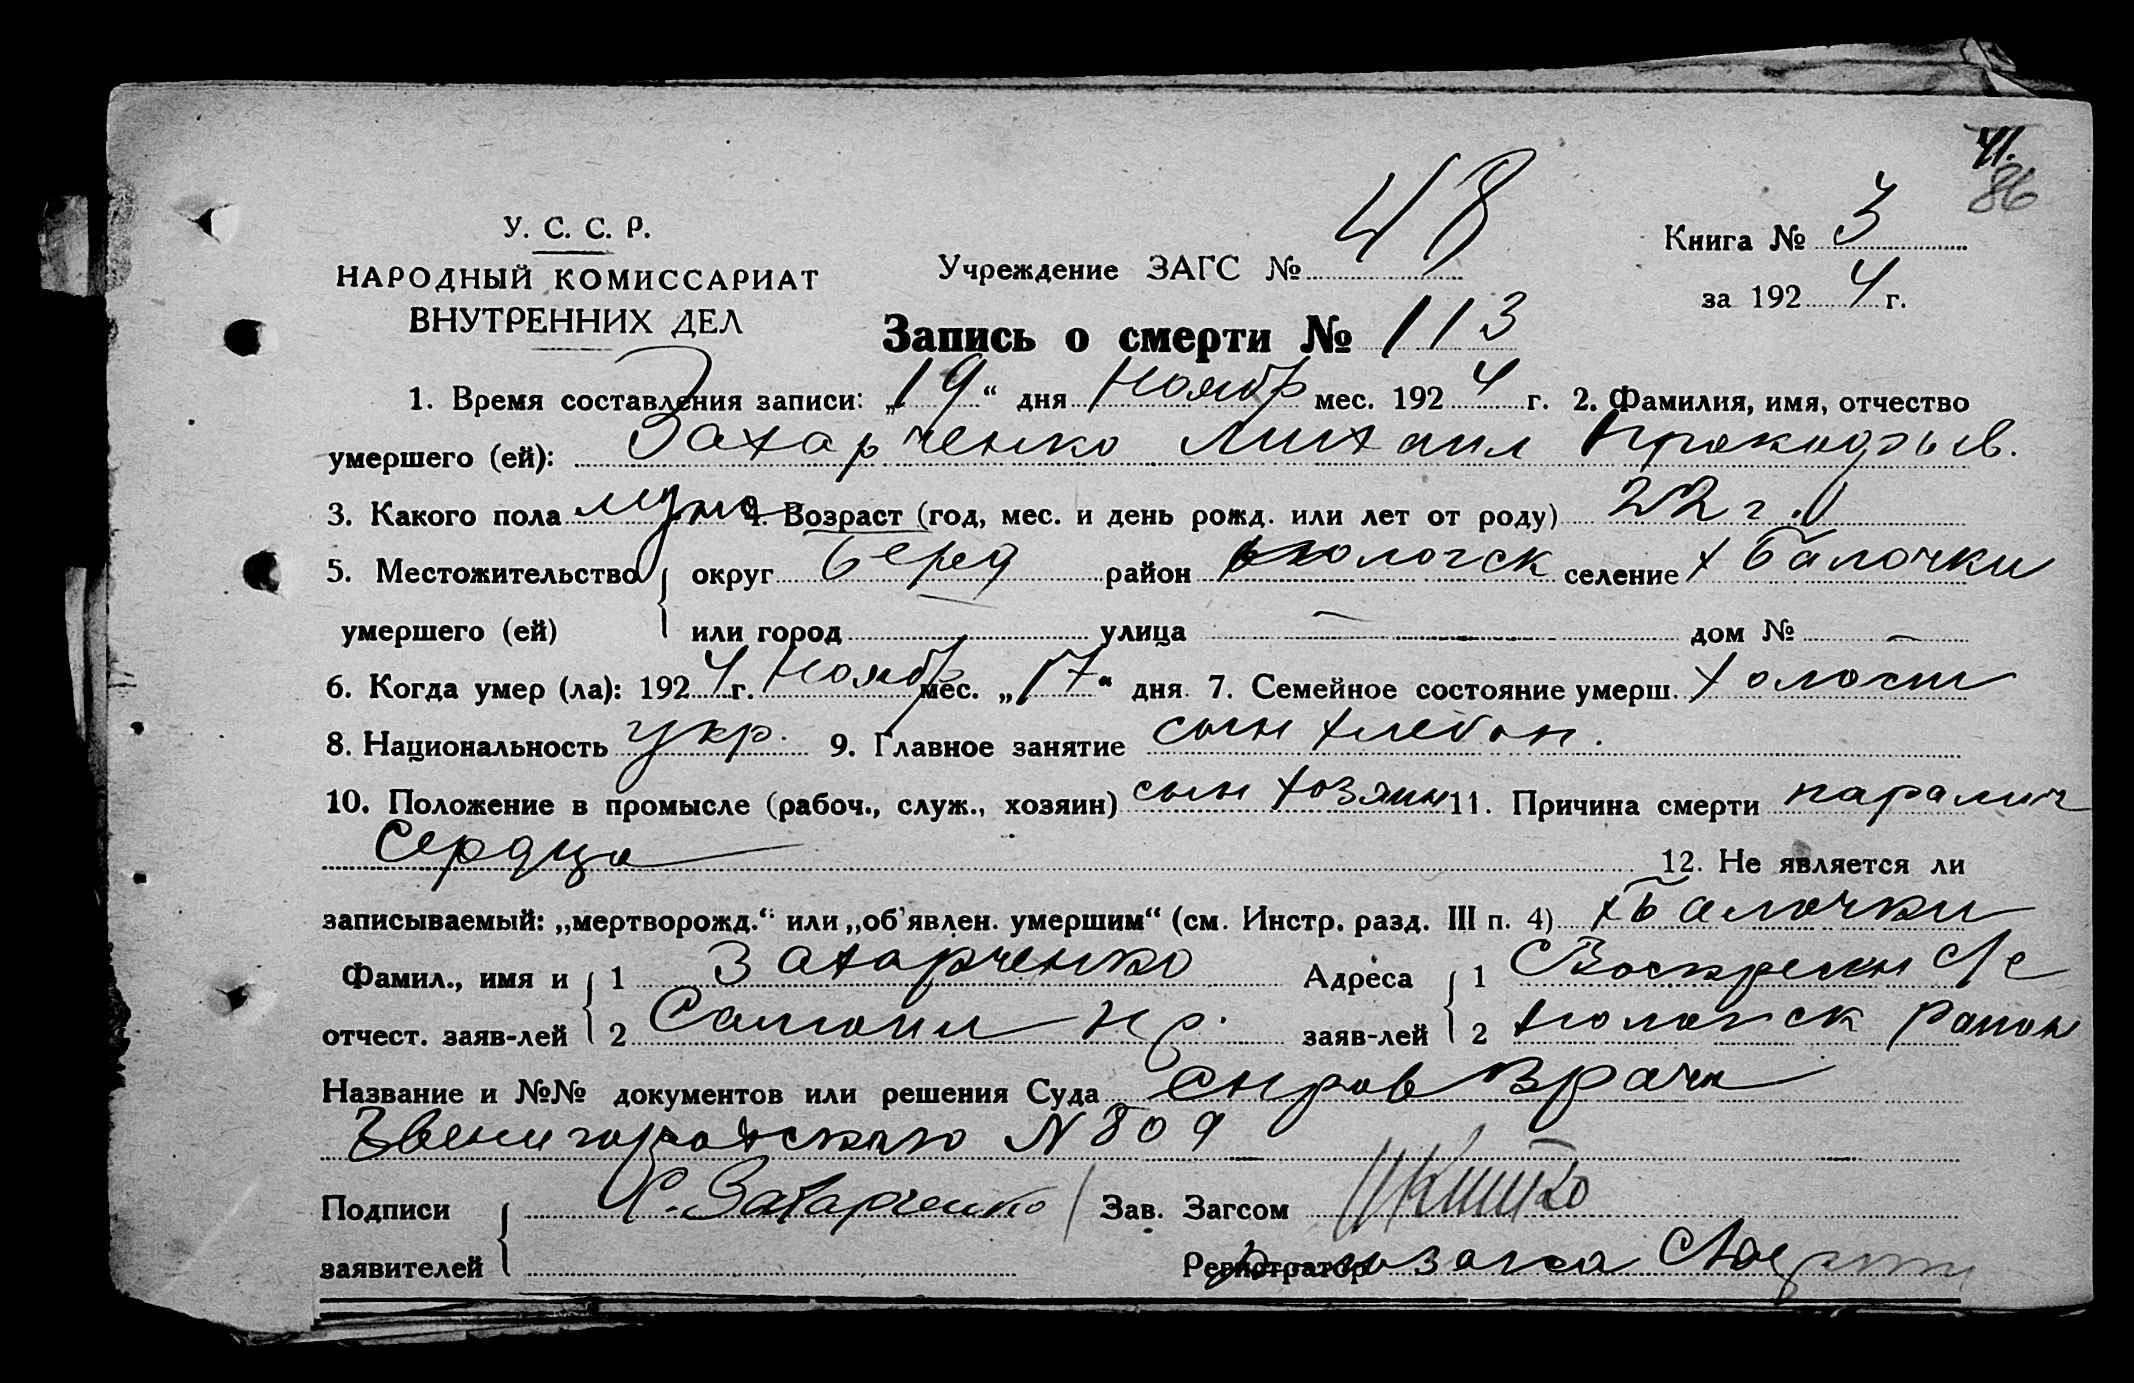 41.
86
У. С. С. Р.
НАРОДНЫЙ КОМИССАРИАТ
ВНУТРЕННИХ ДЕЛ
Учреждение ЗАГС № 48
Книга № 3
за 1924 г.
Запись о смерти № 113
1. Время составления записи: „19“ дня Ноябр мес. 1924 г. 2. Фамилия, имя, отчество
умершего (ей): Захарченко Михаил
3. Какого пола муж 4. Возраст (год, мес. и день рожд. или лет от роду) 22 г.
5. Местожительство округ район селение х Балочки
умершего (ей) или город улица — дом № —
6. Когда умер (ла): 1924 г. Ноябр мес. „17“ дня 7. Семейное состояние умерш. холост
8. Национальность укр. 9. Главное занятие сын хлебоп.
10. Положение в промысле (рабоч., служ., хозяин) сын хозяин 11. Причина смерти паралич
Сердца 12. Не является ли
записываемый: „мертворожд.“ или „об’явлен. умершим“ (см. Инстр. разд. III п. 4) х Балочки
Фамил., имя и 1 Захарченко Адреса 1 Воскресен с/с
отчест. заяв-лей 2 Самоил пр. заяв-лей 2 район
Название и №№ документов или решения Суда Справ врача
N 809
Подписи С. Захарченко Зав. Загсом
заявителей Регистратор